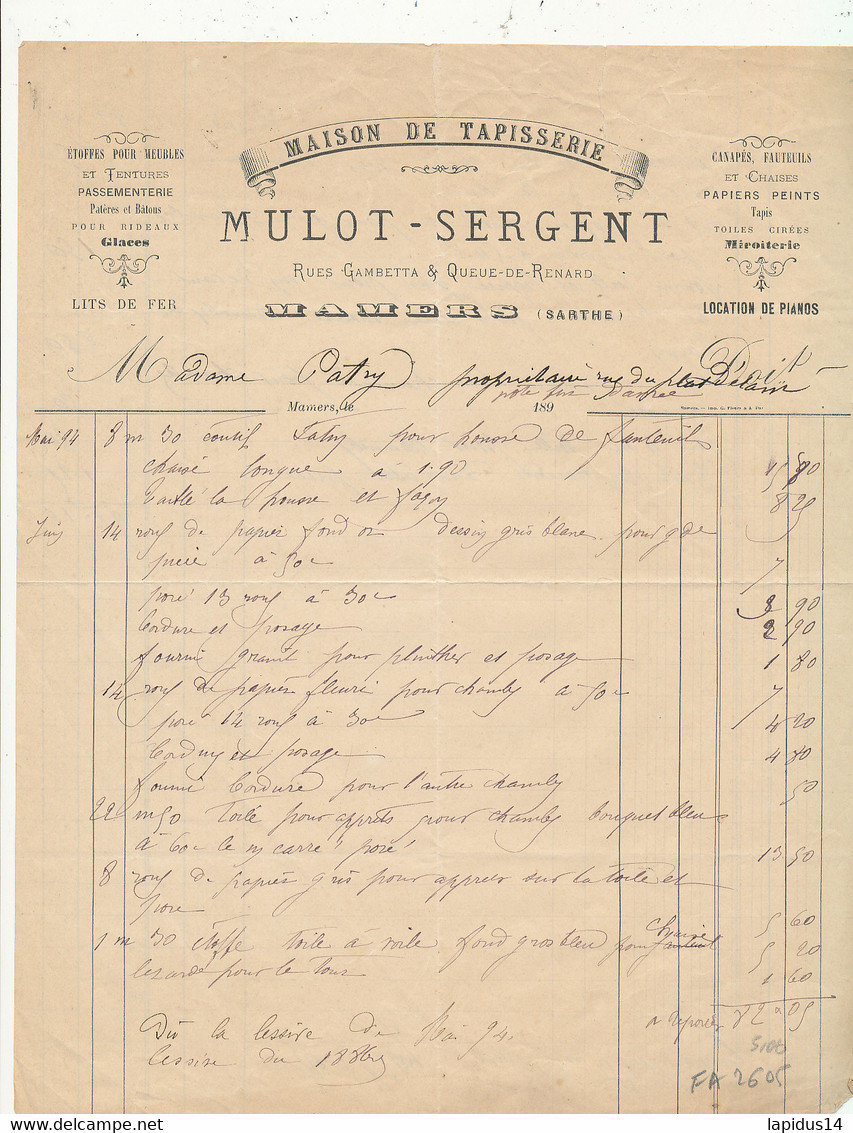 MAISON DE TAPISSERIE
ÉTOFFES POUR MEUBLES
ET TENTURES
PASSEMENTERIE
Patères et Bâtons
POUR RIDEAUX
Glaces
LITS DE FER
CANAPÉS, FAUTEUILS
ET CHAISES
PAPIERS PEINTS
Tapis
TOILES CIRÉES
Miroiterie
LOCATION DE PIANOS
MULOT-SERGENT
RUES GAMBETTA & QUEUE-DE-RENARD
MAMERS (SARTHE)
Doit
Madame Patry propriétaire rue du
Mamers, le 189
Mai 94 8 m 30 coutil pour housse de fauteuil
chaise longue à 1.90 15 80
la housse et façon 8 25
Juin 14 roul de papier fond or dessin gris blanc pour gde
pièce à 50c 7
posé 13 roul à 30c 3 90
bordure et posage 2 90
fourni granit pour plinthes et posage 1 80
14 roul de papier fleuri pour chamb à 50c 7
posé 14 roul à 30c 4 20
bordure et posage 4 80
fourni bordure pour l'autre chamb 50
22 m50 toile pour apprêts pour chamb bouquet bleus
à 60c le m carré posé 13 50
8 roul de papier gris pour apprêts sur la toile et
pose 5 60
1 m 30 étoffe toile à voile fond gros bleu pour chaise 5 20
lezarde pour le tour 1 60
à reporter 82 05
Dû la lessive de Mai 94
lessive du
FA 2605
lapidus14